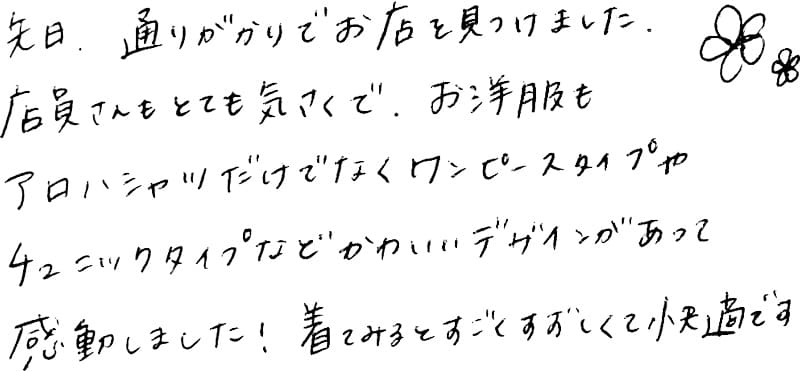 先日、通りがかりでお店を見つけました。
店員さんもとても気さくで、お洋服も
アロハシャツだけでなくワンピースタイプや
チュニックタイプなどかわいいデザインがあって
感動しました！着てみるとすごくすずしくて快適です